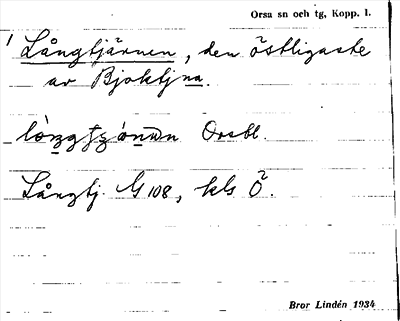 Orsa sn och tg, Kopp. l.
1 Långtjärnen, den östligaste
av Bjoktjna.
Orsbl.
Långtj. G 108, kls Ö2.
Bror Lindén 1934